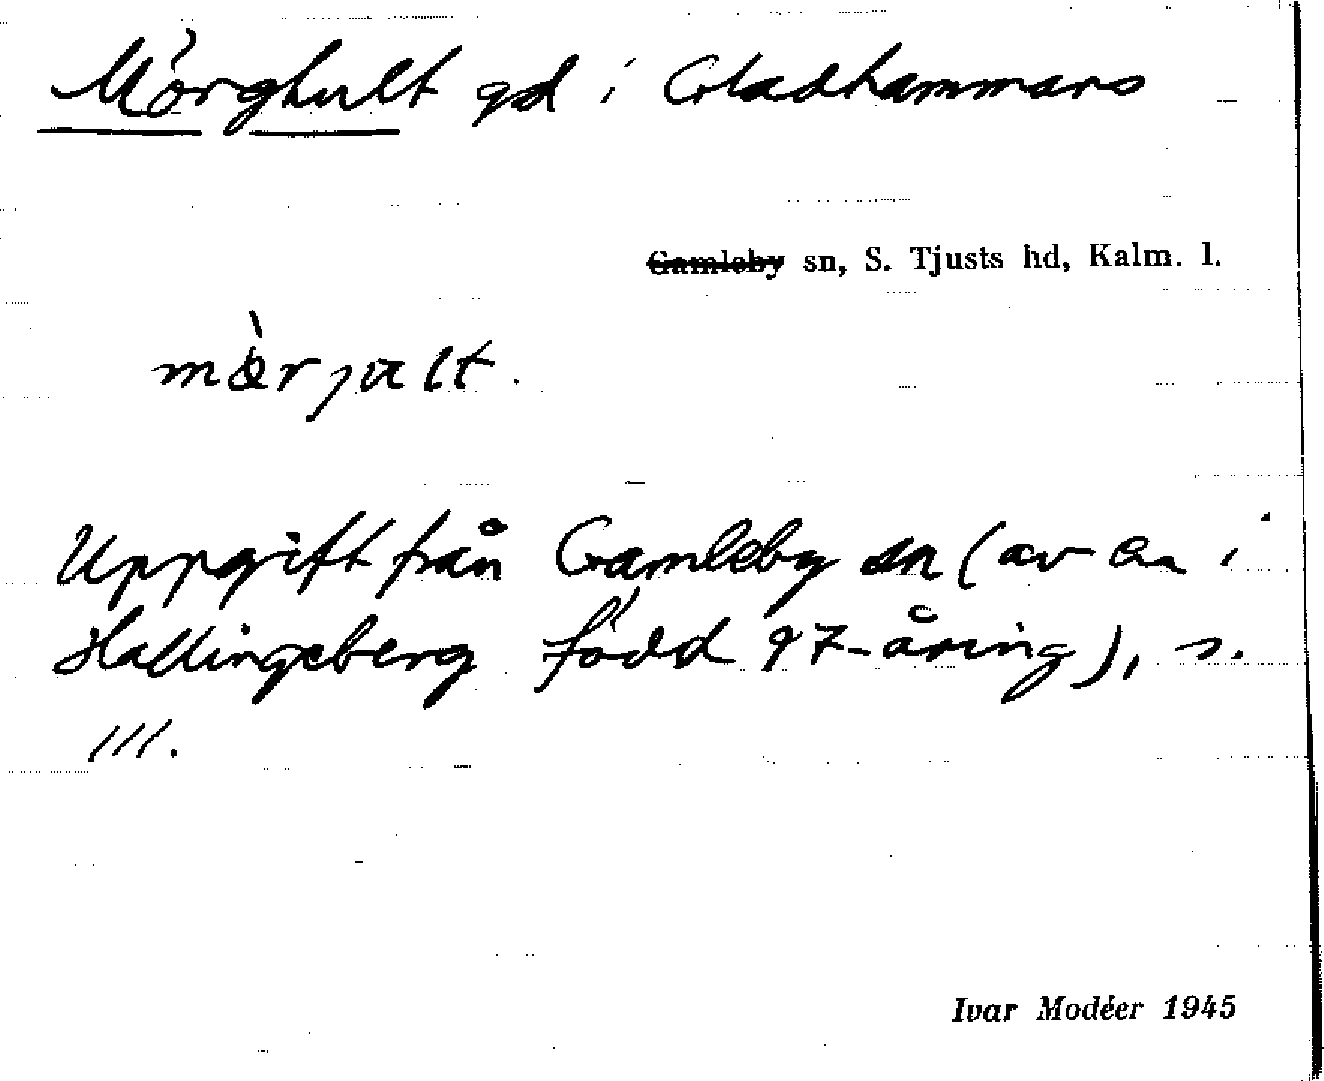 Mörghult gd i Gladhammars
Gamleby sn, S. Tjusts hd, Kalm. l.
mö̀rjalt.
Uppgift från Gamleby sn (av en i
Hallingeberg född 97-åring), s.
111.
Ivar Modéer 1945